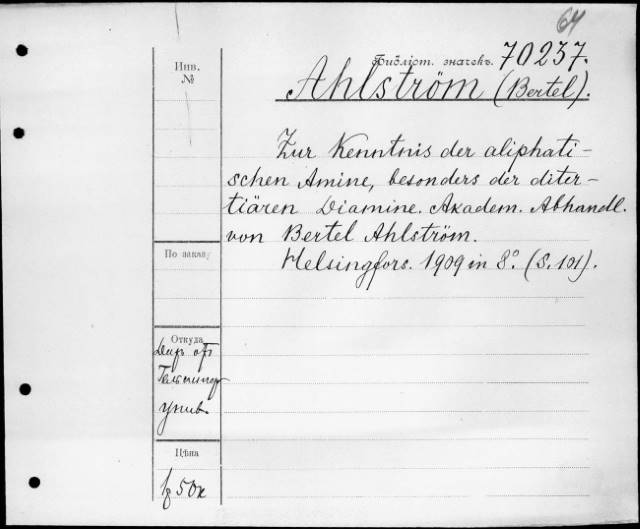 64
Библіот. значекъ. 70237.
Ahlström (Bertel).
Инв.
№
Zur Kenntnis der aliphati-
schen Amine, besonders der diter-
tiären Diamine. Akadem. Abhandl.
von Bertel Ahlström.
Helsingfors. 1909 in 8°. (S. 101).
По заказу
Откуда
Даръ отъ
Гельсингф
унив.
Цѣна
50к